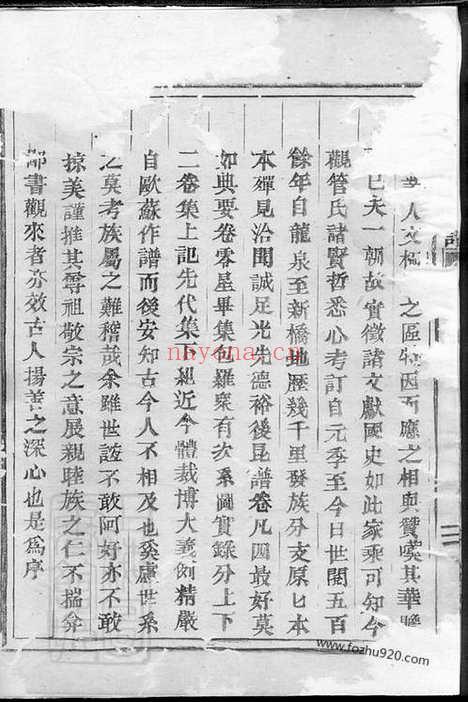 人文樞 之區 因而應之相與贊 其華
已夫一朝故實徵諸文獻國史如此家乘可知今
觀管氏諸賢哲悉心考訂自元季至今日世閱五百
餘年自龍泉至新橋地歷幾千里發族分支原匕本
本殫見洽聞誠足光先德裕後昆譜卷凡四最好莫
如典要卷零星畢集包羅衆有次系圖實錄分上下
二卷集上記先代集下組近今體裁博大義例精嚴
自歐蘇作譜而後安知古今人不相及也奚慮世系
之莫考族屬之難稽哉余雖世誼不敢阿好亦不敢
掠美謹推其尊祖敬宗之意展親睦族之仁不揣弇
鄙書觀來者亦效古人揚善之深心也是爲序
nayona.cn
www.fozhu920.com